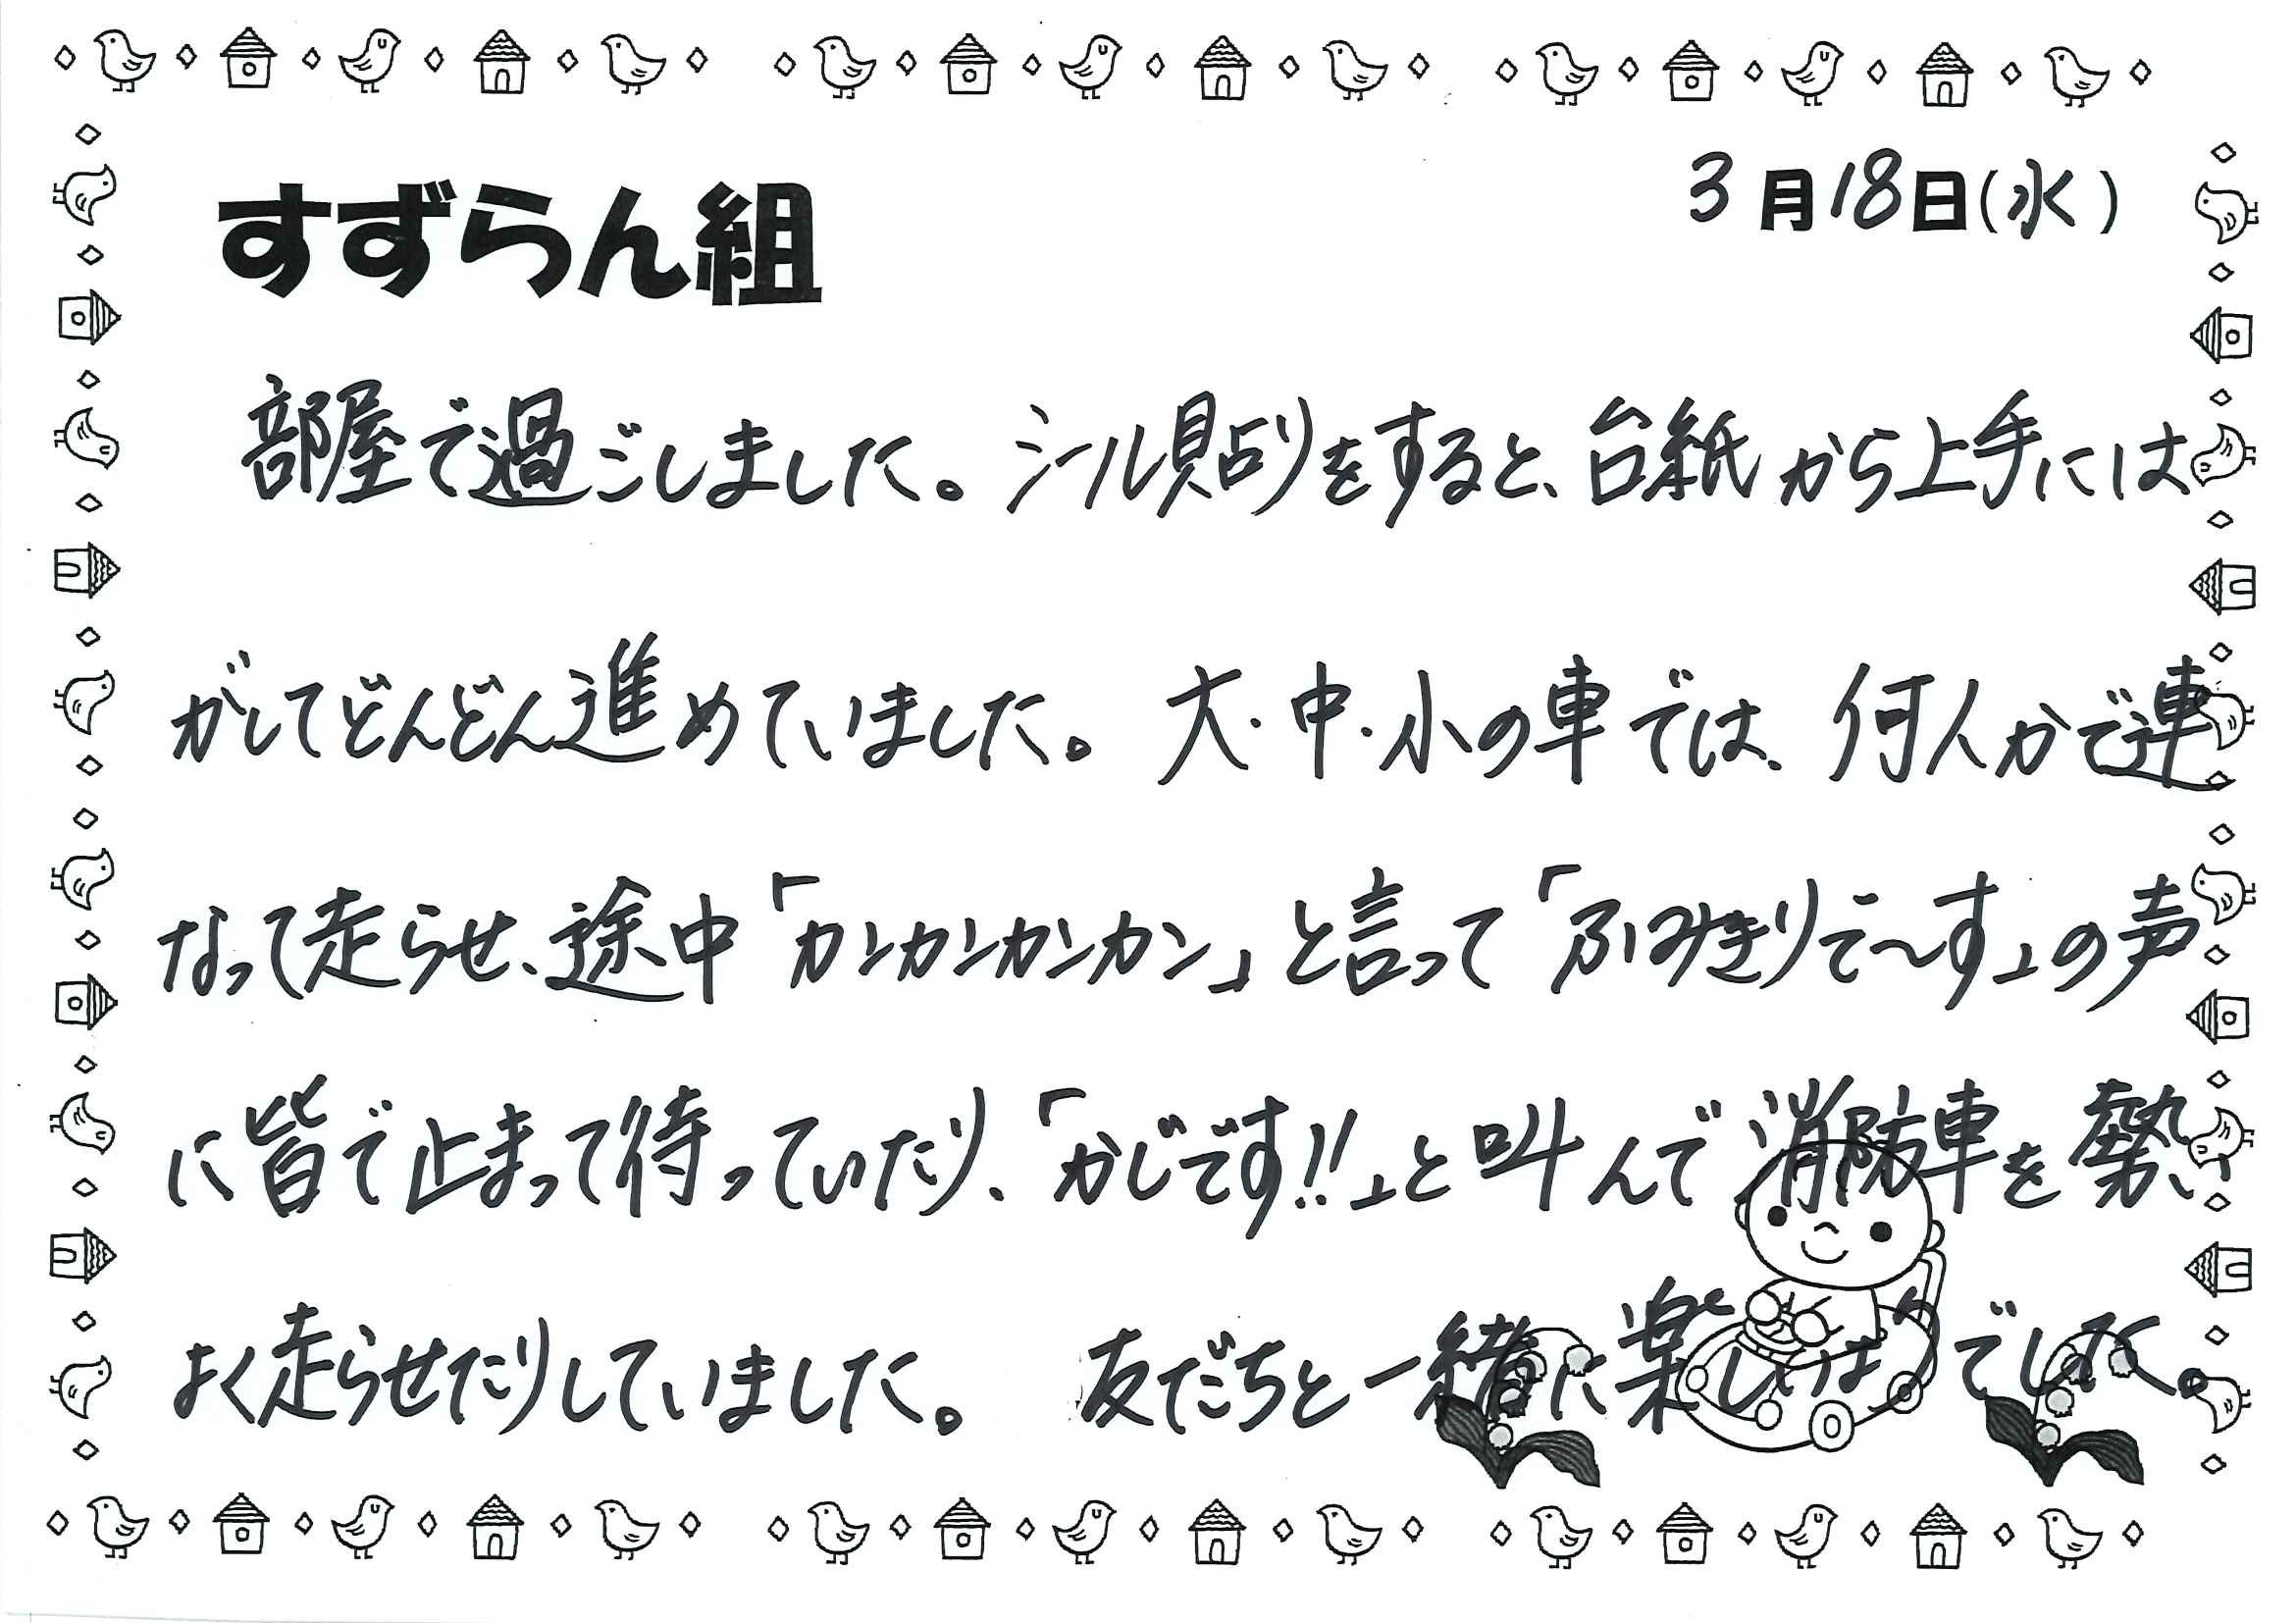 すずらん組
3月18日(水)
部屋で過ごしました。シール貼りをすると、台紙から上手には
がしてどんどん進めていました。大・中・小の車では、何人かで連
なって走らせ、途中「カンカンカンカン」と言って「ふみきりで〜す」の声
に皆で止まって待っていたり、「かじです!!」と叫んで消防車を勢い
よく走らせたりしていました。友だちと一緒に楽しいようでした。